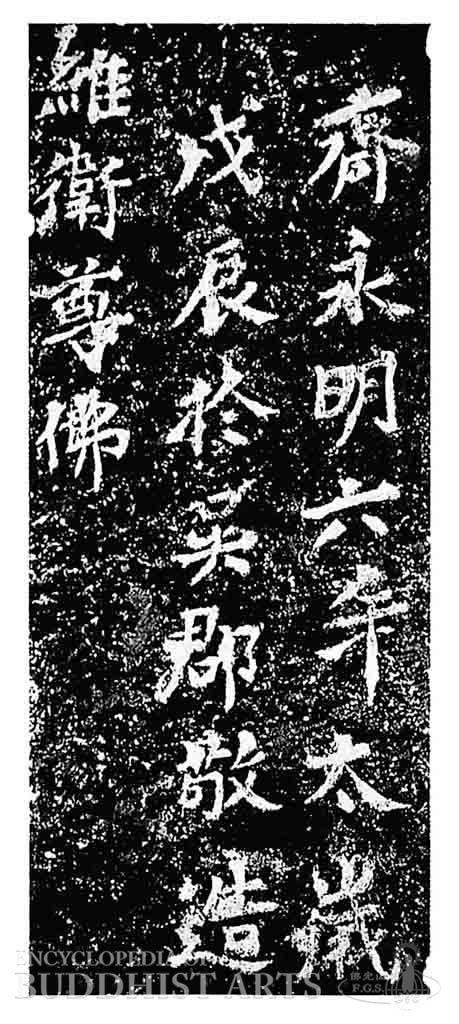 齊永明六年太歲
戊辰於吳郡敬造
維衛尊佛
ENCYCLOPEDIA OF
BUDDHIST ARTS
佛光山
F.G.S.